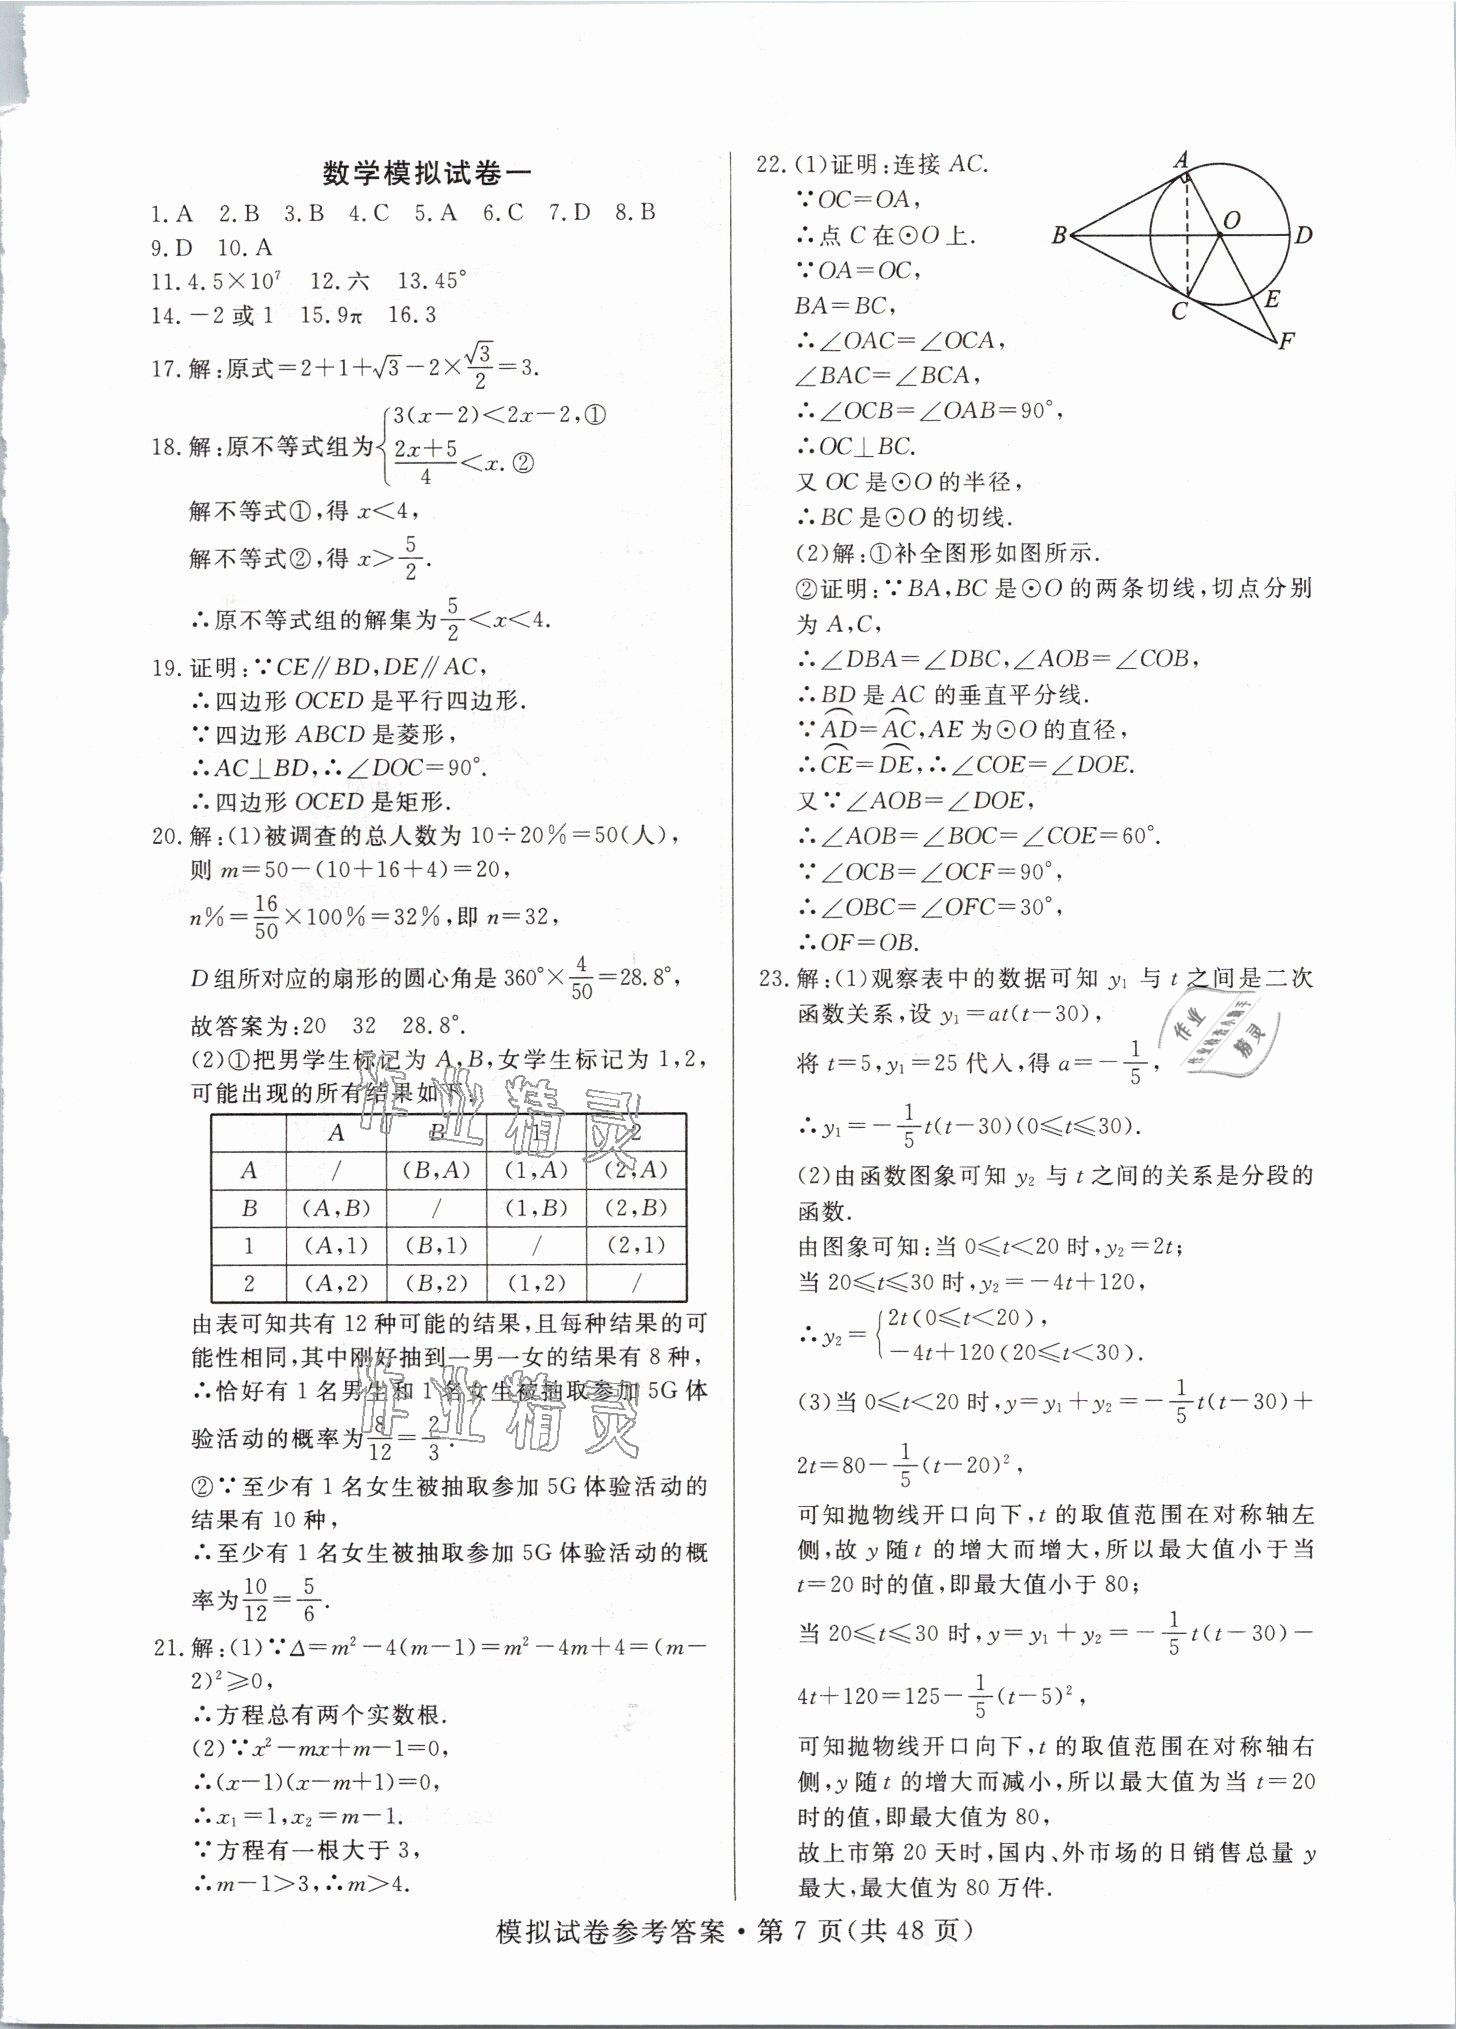 数学模拟试卷一
1.A 2.B 3.B 4.C 5.A 6.C 7.D 8.B
9.D 10.A
11.4.5×10⁷ 12.六 13.45°
14.－2或1 15.9π 16.3
17.解:原式=2+1+√3－2×√3/2=3.
18.解:原不等式组为{3(x－2)<2x－2,①
(2x+5)/4<x.②
解不等式①,得x<4,
解不等式②,得x>5/2.
∴原不等式组的解集为5/2<x<4.
19.证明:∵CE∥BD,DE∥AC,
∴四边形OCED是平行四边形.
∵四边形ABCD是菱形,
∴AC⊥BD,∴∠DOC=90°.
∴四边形OCED是矩形.
20.解:(1)被调查的总人数为10÷20%=50(人),
则m=50－(10+16+4)=20,
n%=16/50×100%=32%,即n=32,
D组所对应的扇形的圆心角是360°×4/50=28.8°,
故答案为:20 32 28.8°.
(2)①把男学生标记为A,B,女学生标记为1,2,
可能出现的所有结果如下:
A B 1 2
A / (B,A) (1,A) (2,A)
B (A,B) / (1,B) (2,B)
1 (A,1) (B,1) / (2,1)
2 (A,2) (B,2) (1,2) /
由表可知共有12种可能的结果,且每种结果的可
能性相同,其中刚好抽到一男一女的结果有8种,
∴恰好有1名男生和1名女生被抽取参加5G体
验活动的概率为8/12=2/3.
②∵至少有1名女生被抽取参加5G体验活动的
结果有10种,
∴至少有1名女生被抽取参加5G体验活动的概
率为10/12=5/6.
21.解:(1)∵Δ=m²－4(m－1)=m²－4m+4=(m－
2)²⩾0,
∴方程总有两个实数根.
(2)∵x²－mx+m－1=0,
∴(x－1)(x－m+1)=0,
∴x₁=1,x₂=m－1.
∵方程有一根大于3,
∴m－1>3,∴m>4.
22.(1)证明:连接AC.
∵OC=OA,
∴点C在⊙O上.
∵OA=OC,
BA=BC,
∴∠OAC=∠OCA,
∠BAC=∠BCA,
∴∠OCB=∠OAB=90°,
∴OC⊥BC.
又OC是⊙O的半径,
∴BC是⊙O的切线.
A
O
B
D
C
E
F
(2)解:①补全图形如图所示.
②证明:∵BA,BC是⊙O的两条切线,切点分别
为A,C,
∴∠DBA=∠DBC,∠AOB=∠COB,
∴BD是AC的垂直平分线.
∵A͡D=A͡C,AE为⊙O的直径,
∴C͡E=D͡E,∴∠COE=∠DOE.
又∵∠AOB=∠DOE,
∴∠AOB=∠BOC=∠COE=60°.
∵∠OCB=∠OCF=90°,
∴∠OBC=∠OFC=30°,
∴OF=OB.
23.解:(1)观察表中的数据可知y₁与t之间是二次
函数关系,设y₁=at(t－30),
将t=5,y₁=25代人,得a=－1/5,
∴y₁=－1/5t(t－30)(0⩽t⩽30).
(2)由函数图象可知y₂与t之间的关系是分段的
函数.
由图象可知:当0⩽t<20时,y₂=2t;
当20⩽t⩽30时,y₂=－4t+120,
∴y₂={2t(0⩽t<20),
－4t+120(20⩽t<30).
(3)当0⩽t<20时,y=y₁+y₂=－1/5t(t－30)+
2t=80－1/5(t－20)²,
可知抛物线开口向下,t的取值范围在对称轴左
侧,故y随t的增大而增大,所以最大值小于当
t=20时的值,即最大值小于80;
当20⩽t⩽30时,y=y₁+y₂=－1/5t(t－30)－
4t+120=125－1/5(t－5)²,
可知抛物线开口向下,t的取值范围在对称轴右
侧,y随t的增大而减小,所以最大值为当t=20
时的值,即最大值为80,
故上市第20天时,国内、外市场的日销售总量y
最大,最大值为80万件.
作业精灵
作业精灵
作业
精灵
模拟试卷参考答案·第7页(共48页)